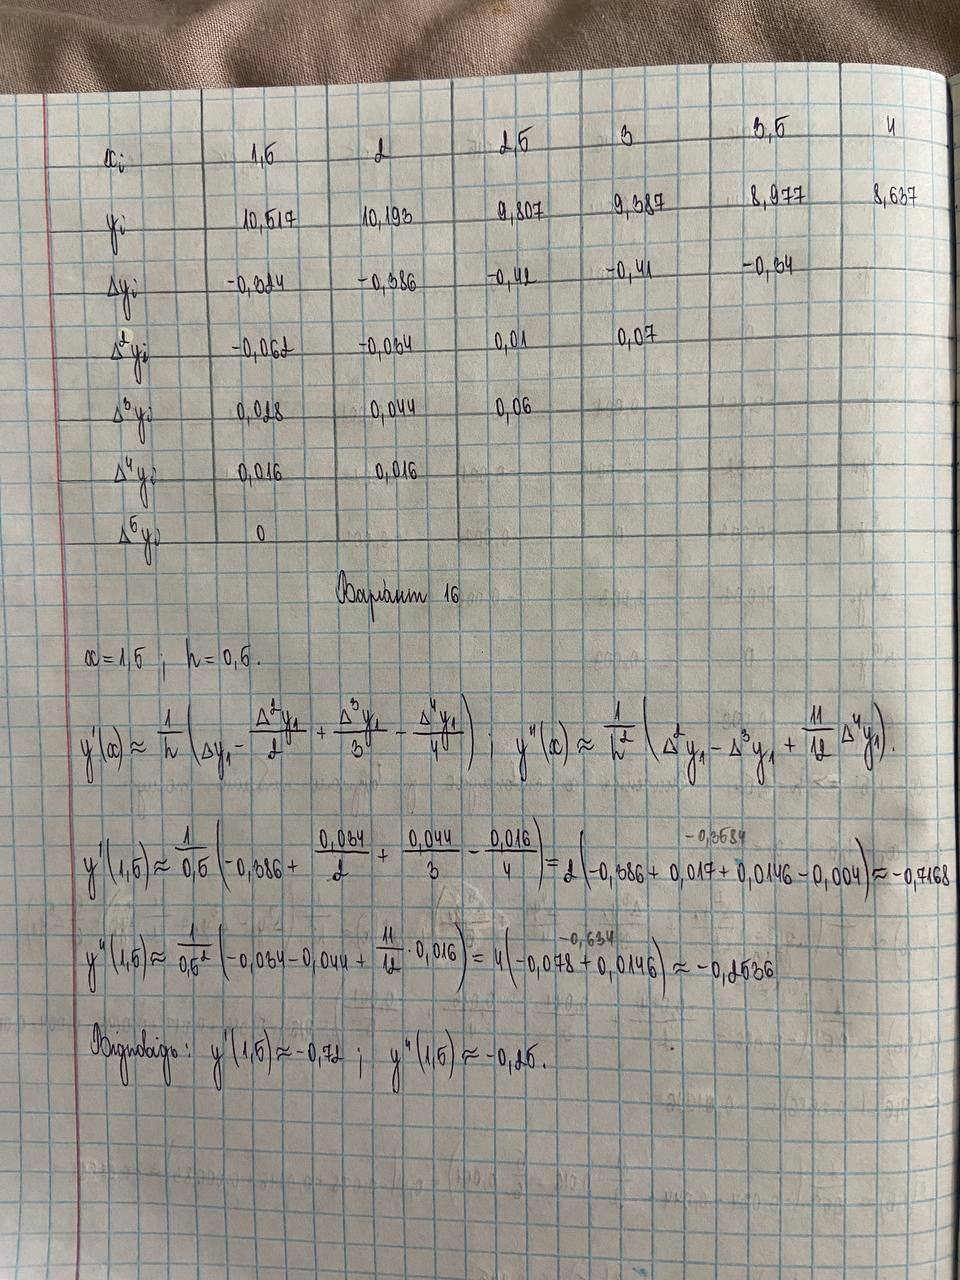 xᵢ 1,5 2 2,5 3 3,5 4
yᵢ 10,517 10,193 9,807 9,387 8,977 8,637
Δyᵢ -0,324 -0,386 -0,42 -0,41 -0,34
Δ²yᵢ -0,062 -0,034 0,01 0,07
Δ³yᵢ 0,028 0,044 0,06
Δ⁴yᵢ 0,016 0,016
Δ⁵yᵢ 0
Варіант 16
x = 1,5 ; h = 0,5.
y'(x) ≈ 1/h (Δy₁ - Δ²y₁/2 + Δ³y₁/3 - Δ⁴y₁/4) ; y''(x) ≈ 1/h² (Δ²y₁ - Δ³y₁ + 11/12 Δ⁴y₁).
-0,3584
y'(1,5) ≈ 1/0,5 (-0,386 + 0,034/2 + 0,044/3 - 0,016/4) = 2(-0,386 + 0,017 + 0,0146 - 0,004) ≈ -0,7168
-0,634
y''(1,5) ≈ 1/0,5² (-0,034 - 0,044 + 11/12 · 0,016) = 4(-0,078 + 0,0146) ≈ -0,2536
Відповідь: y'(1,5) ≈ -0,72 ; y''(1,5) ≈ -0,25.